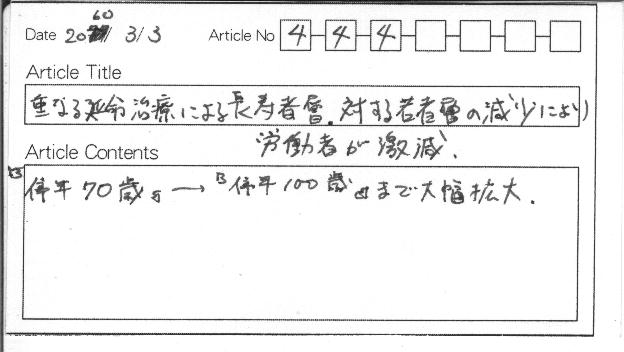 Date 2060/ 3/3 Article No 4 4 4
Article Title
重なる延命治療による長寿者層.対する若者層の減少により
労働者が激減.
Article Contents
停年70歳 → 停年100歳 まで大幅拡大.